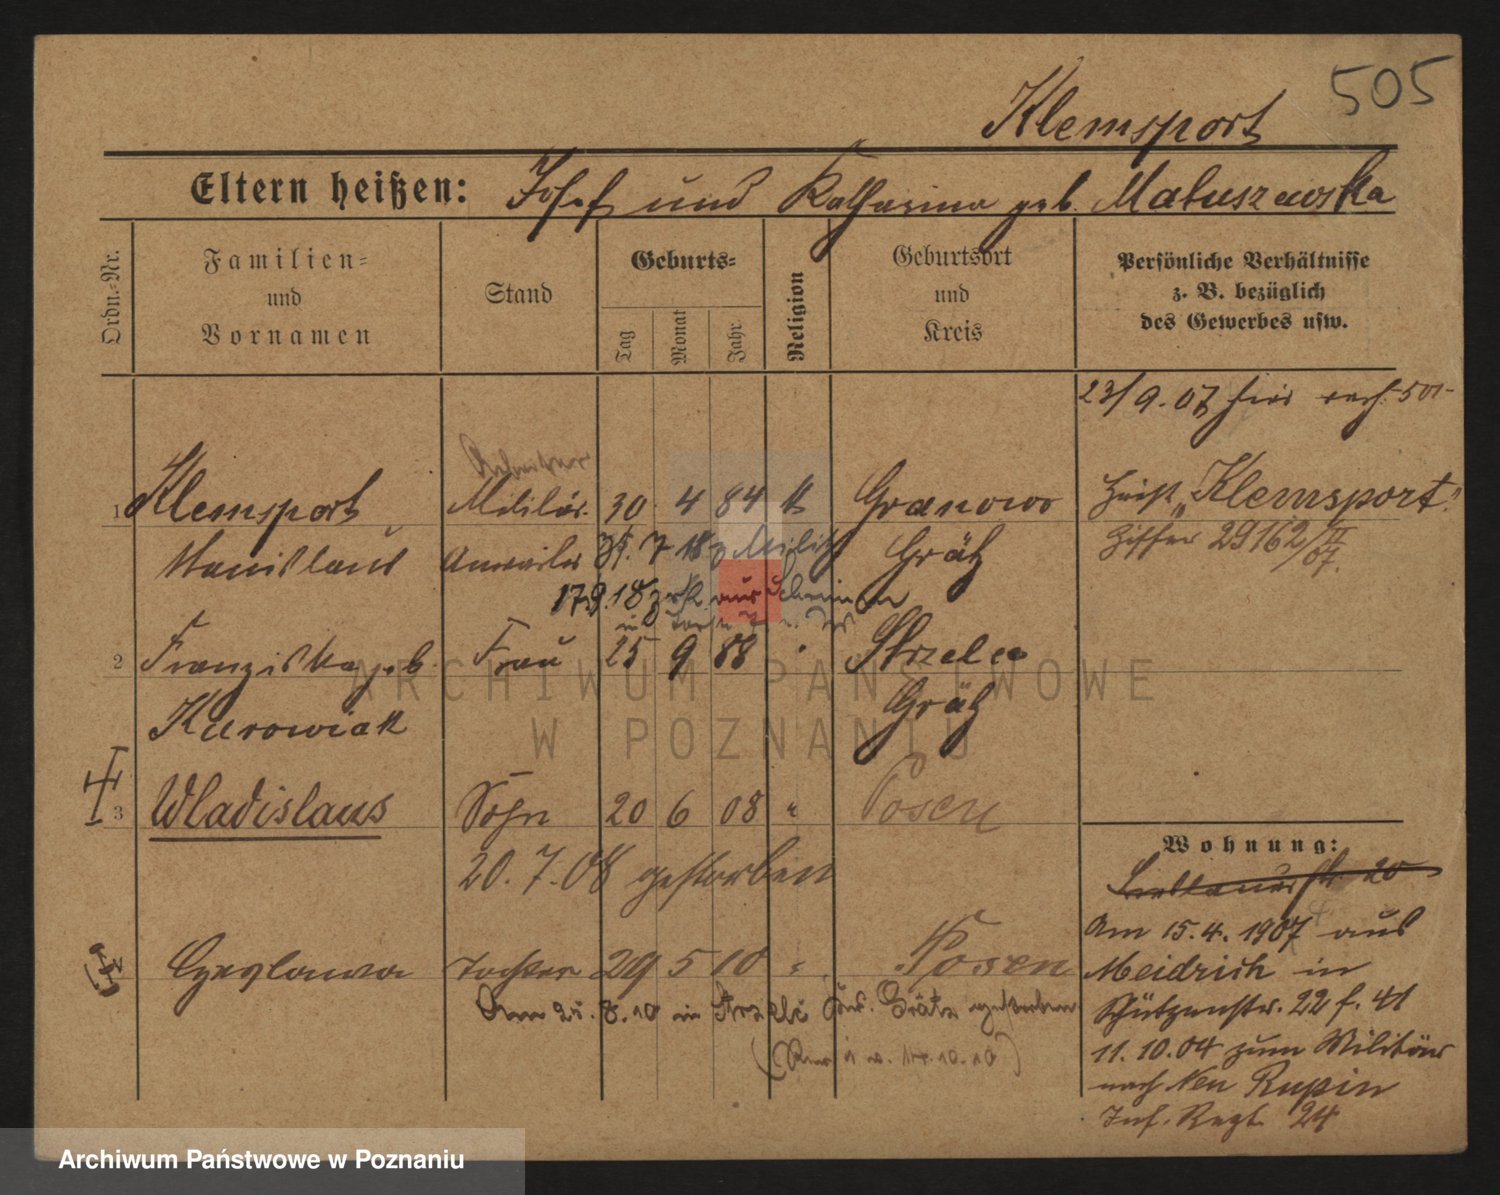 505
Klemsport
Eltern heißen: Josef und Katharina geb. Matuszewska
Ordn.-Nr.
Familien-
und
Vornamen
Stand
Geburts-
Tag
Monat
Jahr
Religion
Geburtsort
und
Kreis
Persönliche Verhältnisse
z. B. bezüglich
des Gewerbes usw.
23/9.07
Arbeiter
1 Klemsport Militär. 30 4 84 k Granowo heißt „Klemsport"
Stanislaus Anwärter Grätz Ziffer 29162/II 07.
17.9.18 aus
2 Franziska geb. Frau 25 9 88 " Strzelce
Kurowiak Grätz
3 Wladislaus Sohn 20 6 08 " Posen
20.7.08 gestorben
Wohnung:
20
Czeslawa Tochter 29 5 10 " Posen
Am 25.8.10 in Strzelce Grätz gestorben
14.10.10)
Am 15.4.1907 aus
Meidrich in
Schützenstr. 22 f. 41
11.10.04 zum Militär
nach Neu Rupin
Inf. Regt. 24
ARCHIWUM PAŃSTWOWE
W POZNANIU
Archiwum Państwowe w Poznaniu